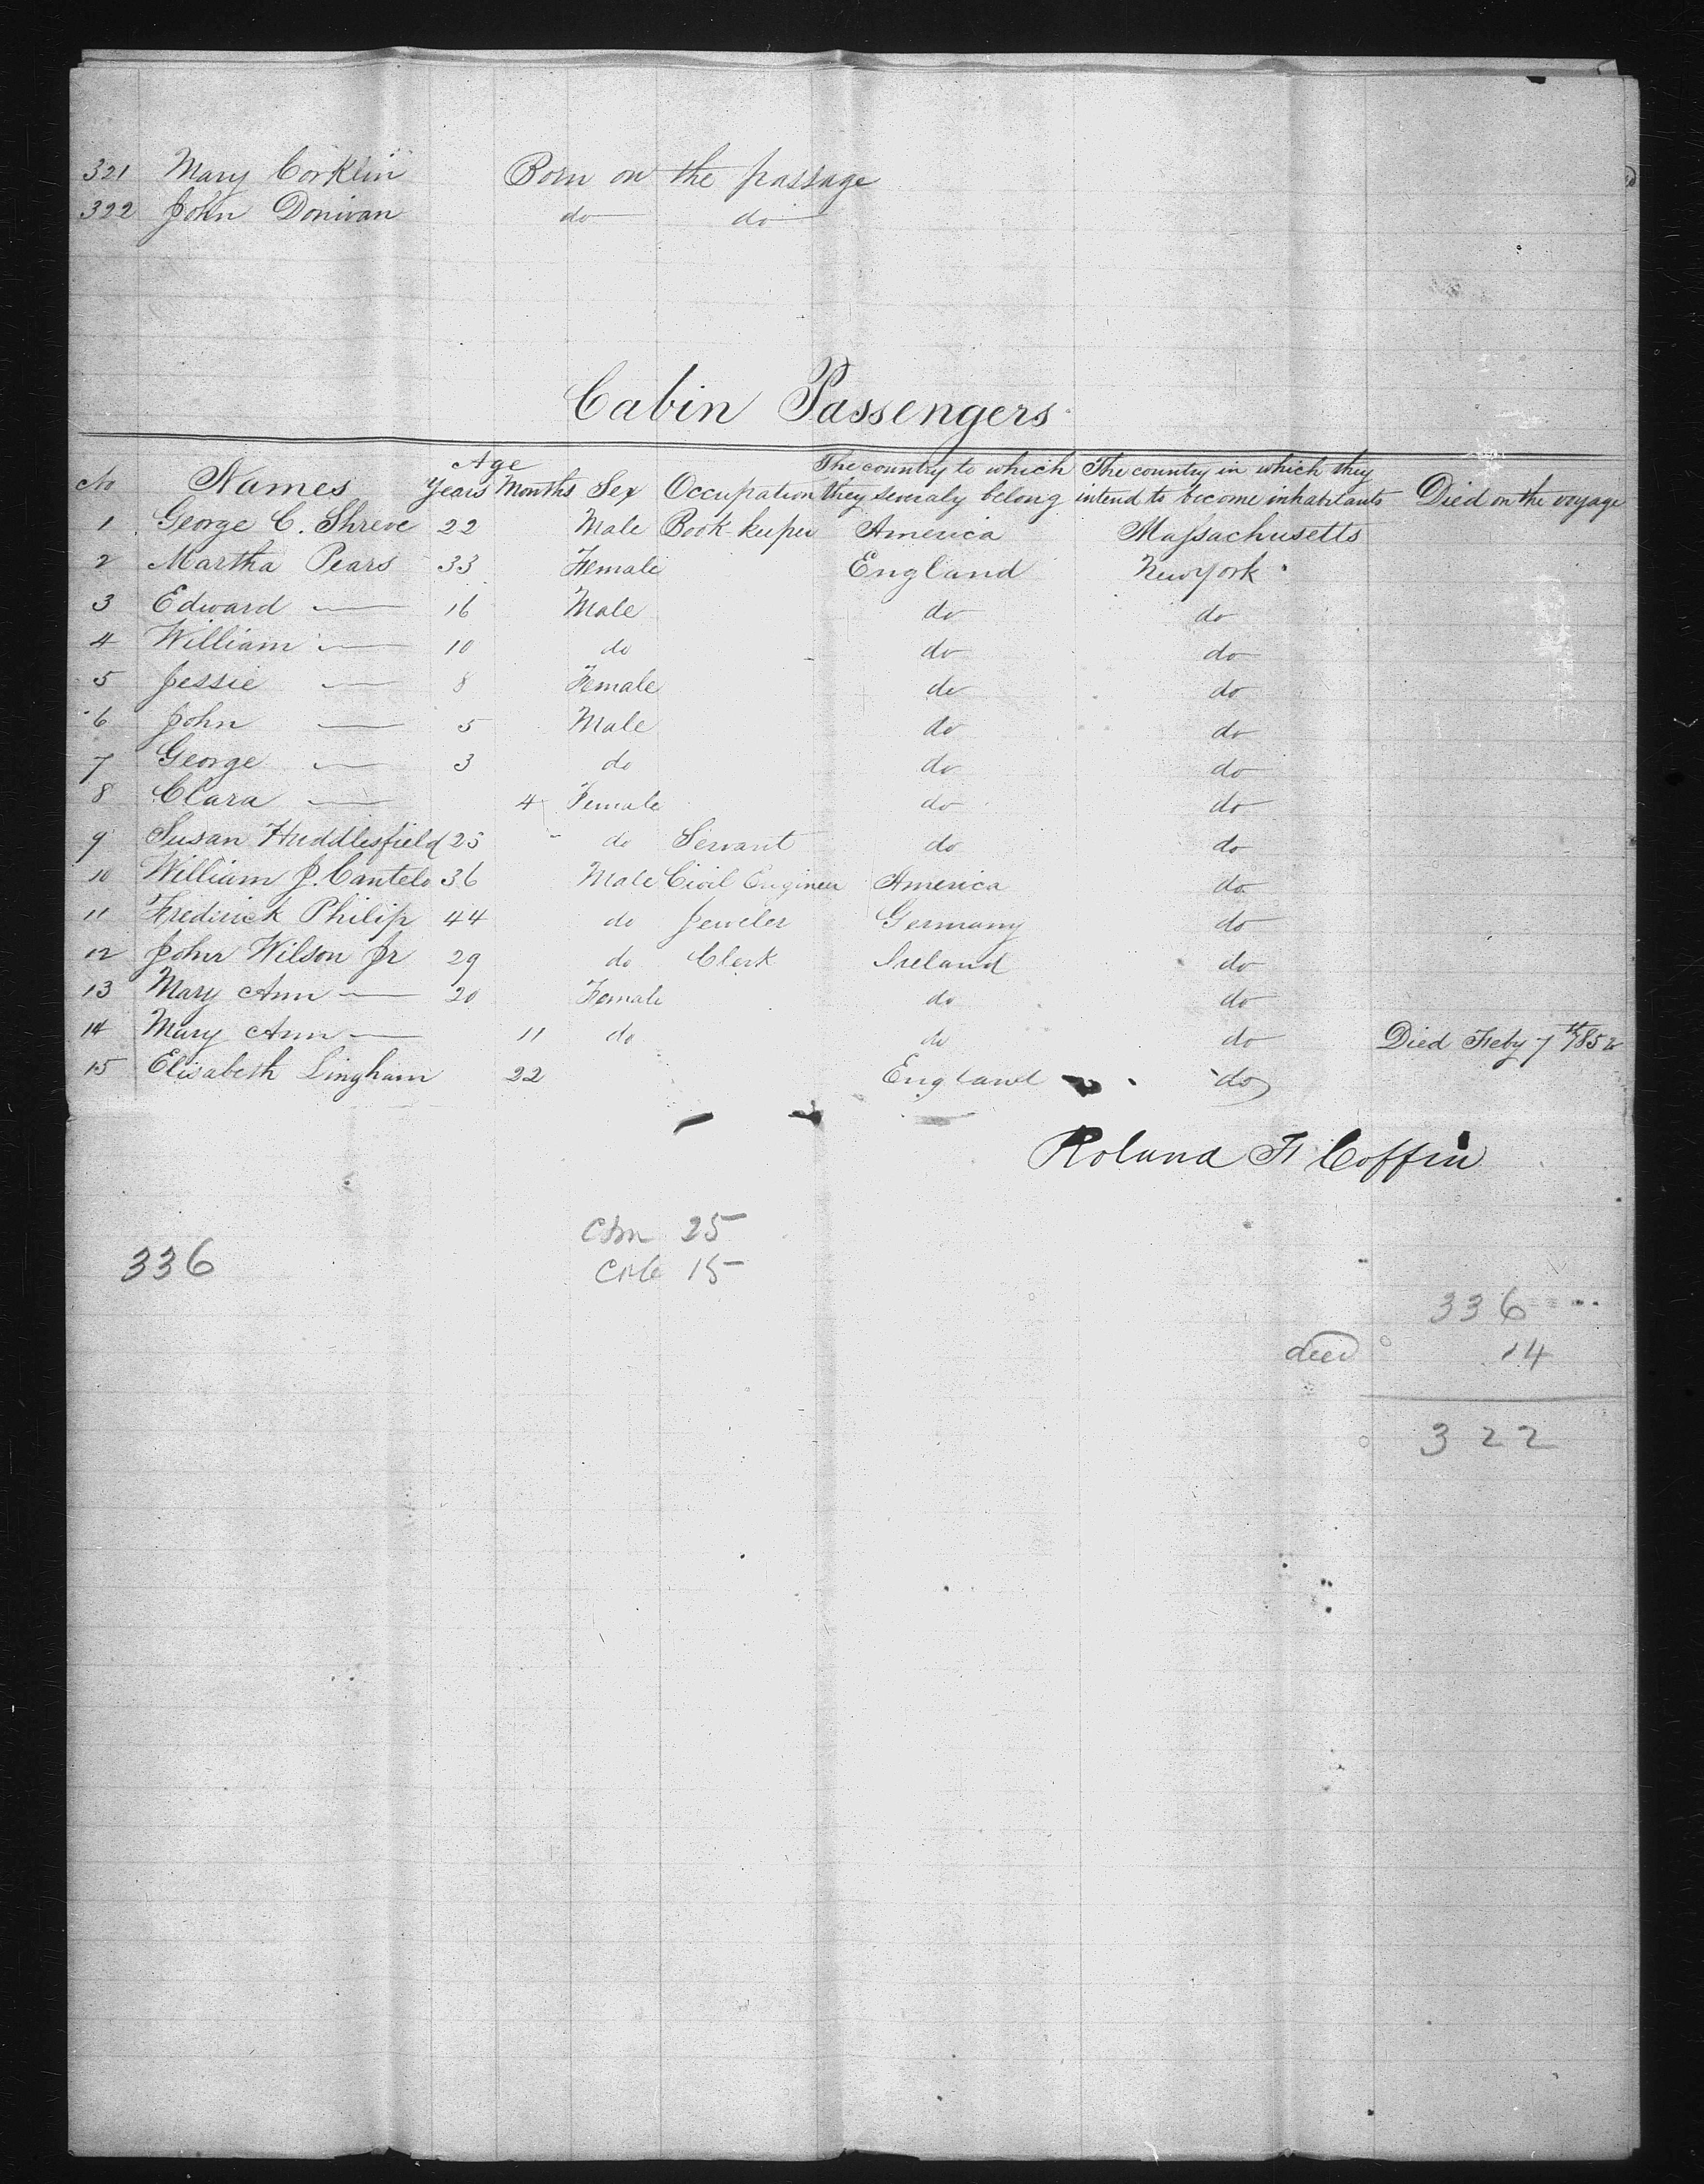 321 Mary Corklin Born on the passage
322 John Donivan do do
Cabin Passengers
No Names Age Years Months Sex Occupation The country to which they severaly belong The country in which they intend to become inhabitants Died on the voyage
1 George C. Shreve 22 Male Book-keeper America Massachusetts
2 Martha Pears 33 Female England New York
3 Edward — 16 Male do do
4 William — 10 do do do
5 Jessie — 8 Female do do
6 John — 5 Male do do
7 George — 3 do do do
8 Clara — 4 Female do do
9 Susan Huddlesfield 25 do Servant do do
10 William J. Cantelo 36 Male Civil Engineer America do
11 Frederick Philip 44 do Jeweler Germany do
12 John Wilson Jr 29 do Clerk Ireland do
13 Mary Ann — 20 Female do do
14 Mary Ann — 11 do do do Died Feby 7th 1852
15 Elisabeth Lingham 22 England do
Roland F Coffin
25
336 15
336
died 14
322